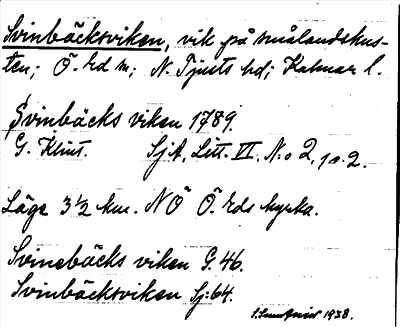 Svinbäcksviken, vik på smålandskus-
ten; Ö. Ed sn; N. Tjusts hd; Kalmar l.
Svinbäcks viken 1789.
G. Klint. SjA, Litt. VI. N:o 2, 1 o. 2.
Läge 3 1/2 km. NÖ Ö. Eds kyrka.
Svinebäcks viken G. 46.
Svinbäcksviken Sj: 64.
1938.